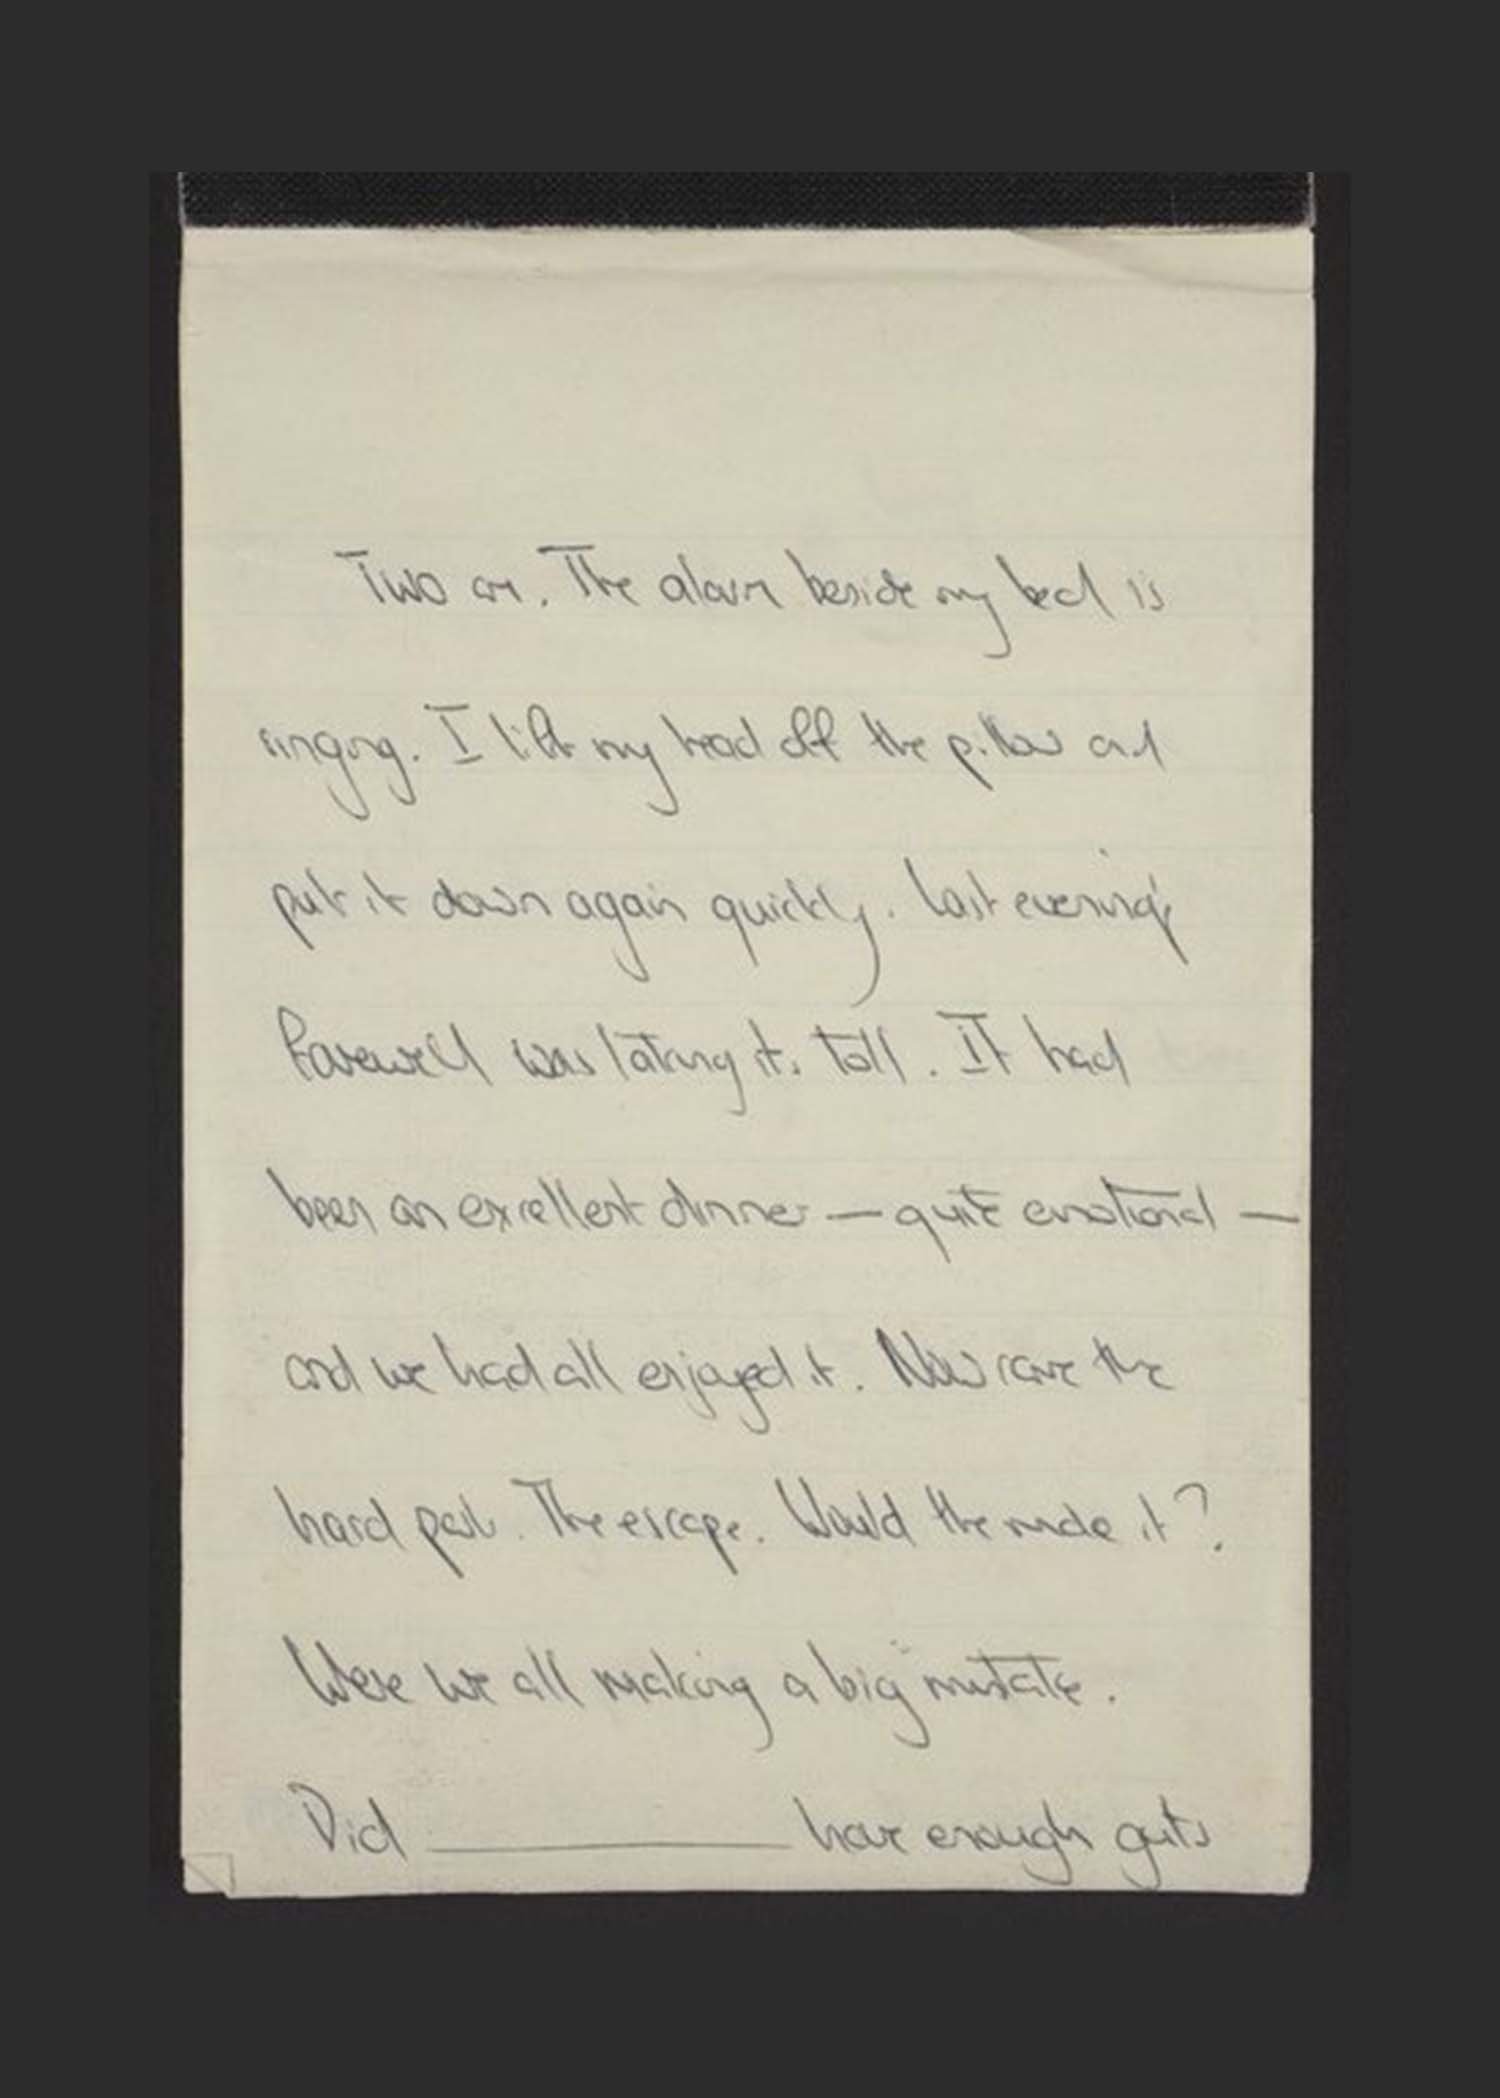 Two am. The alarm beside my bed is
ringing. I lift my head off the pillow and
put it down again quickly. Last evening's
farewell was taking its toll. It had
been an excellent dinner — quite emotional —
and we had all enjoyed it. Now came the
hard part. The escape. Would the made it?
Were we all making a big mistake.
Did ________ have enough guts